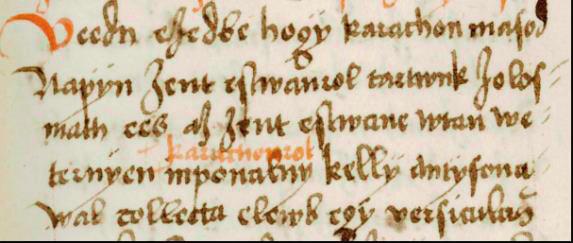 Veedn eʃzedbe hogÿ karachon maʃod
Napÿn Zent eʃtwanrol tartwnk Zolos-
math ees aZ Zent eʃtwane wtan we-
karachonrol
ternÿen mponalnÿ kellÿ antÿfona-
wal collecta elewb egÿ verſicularis